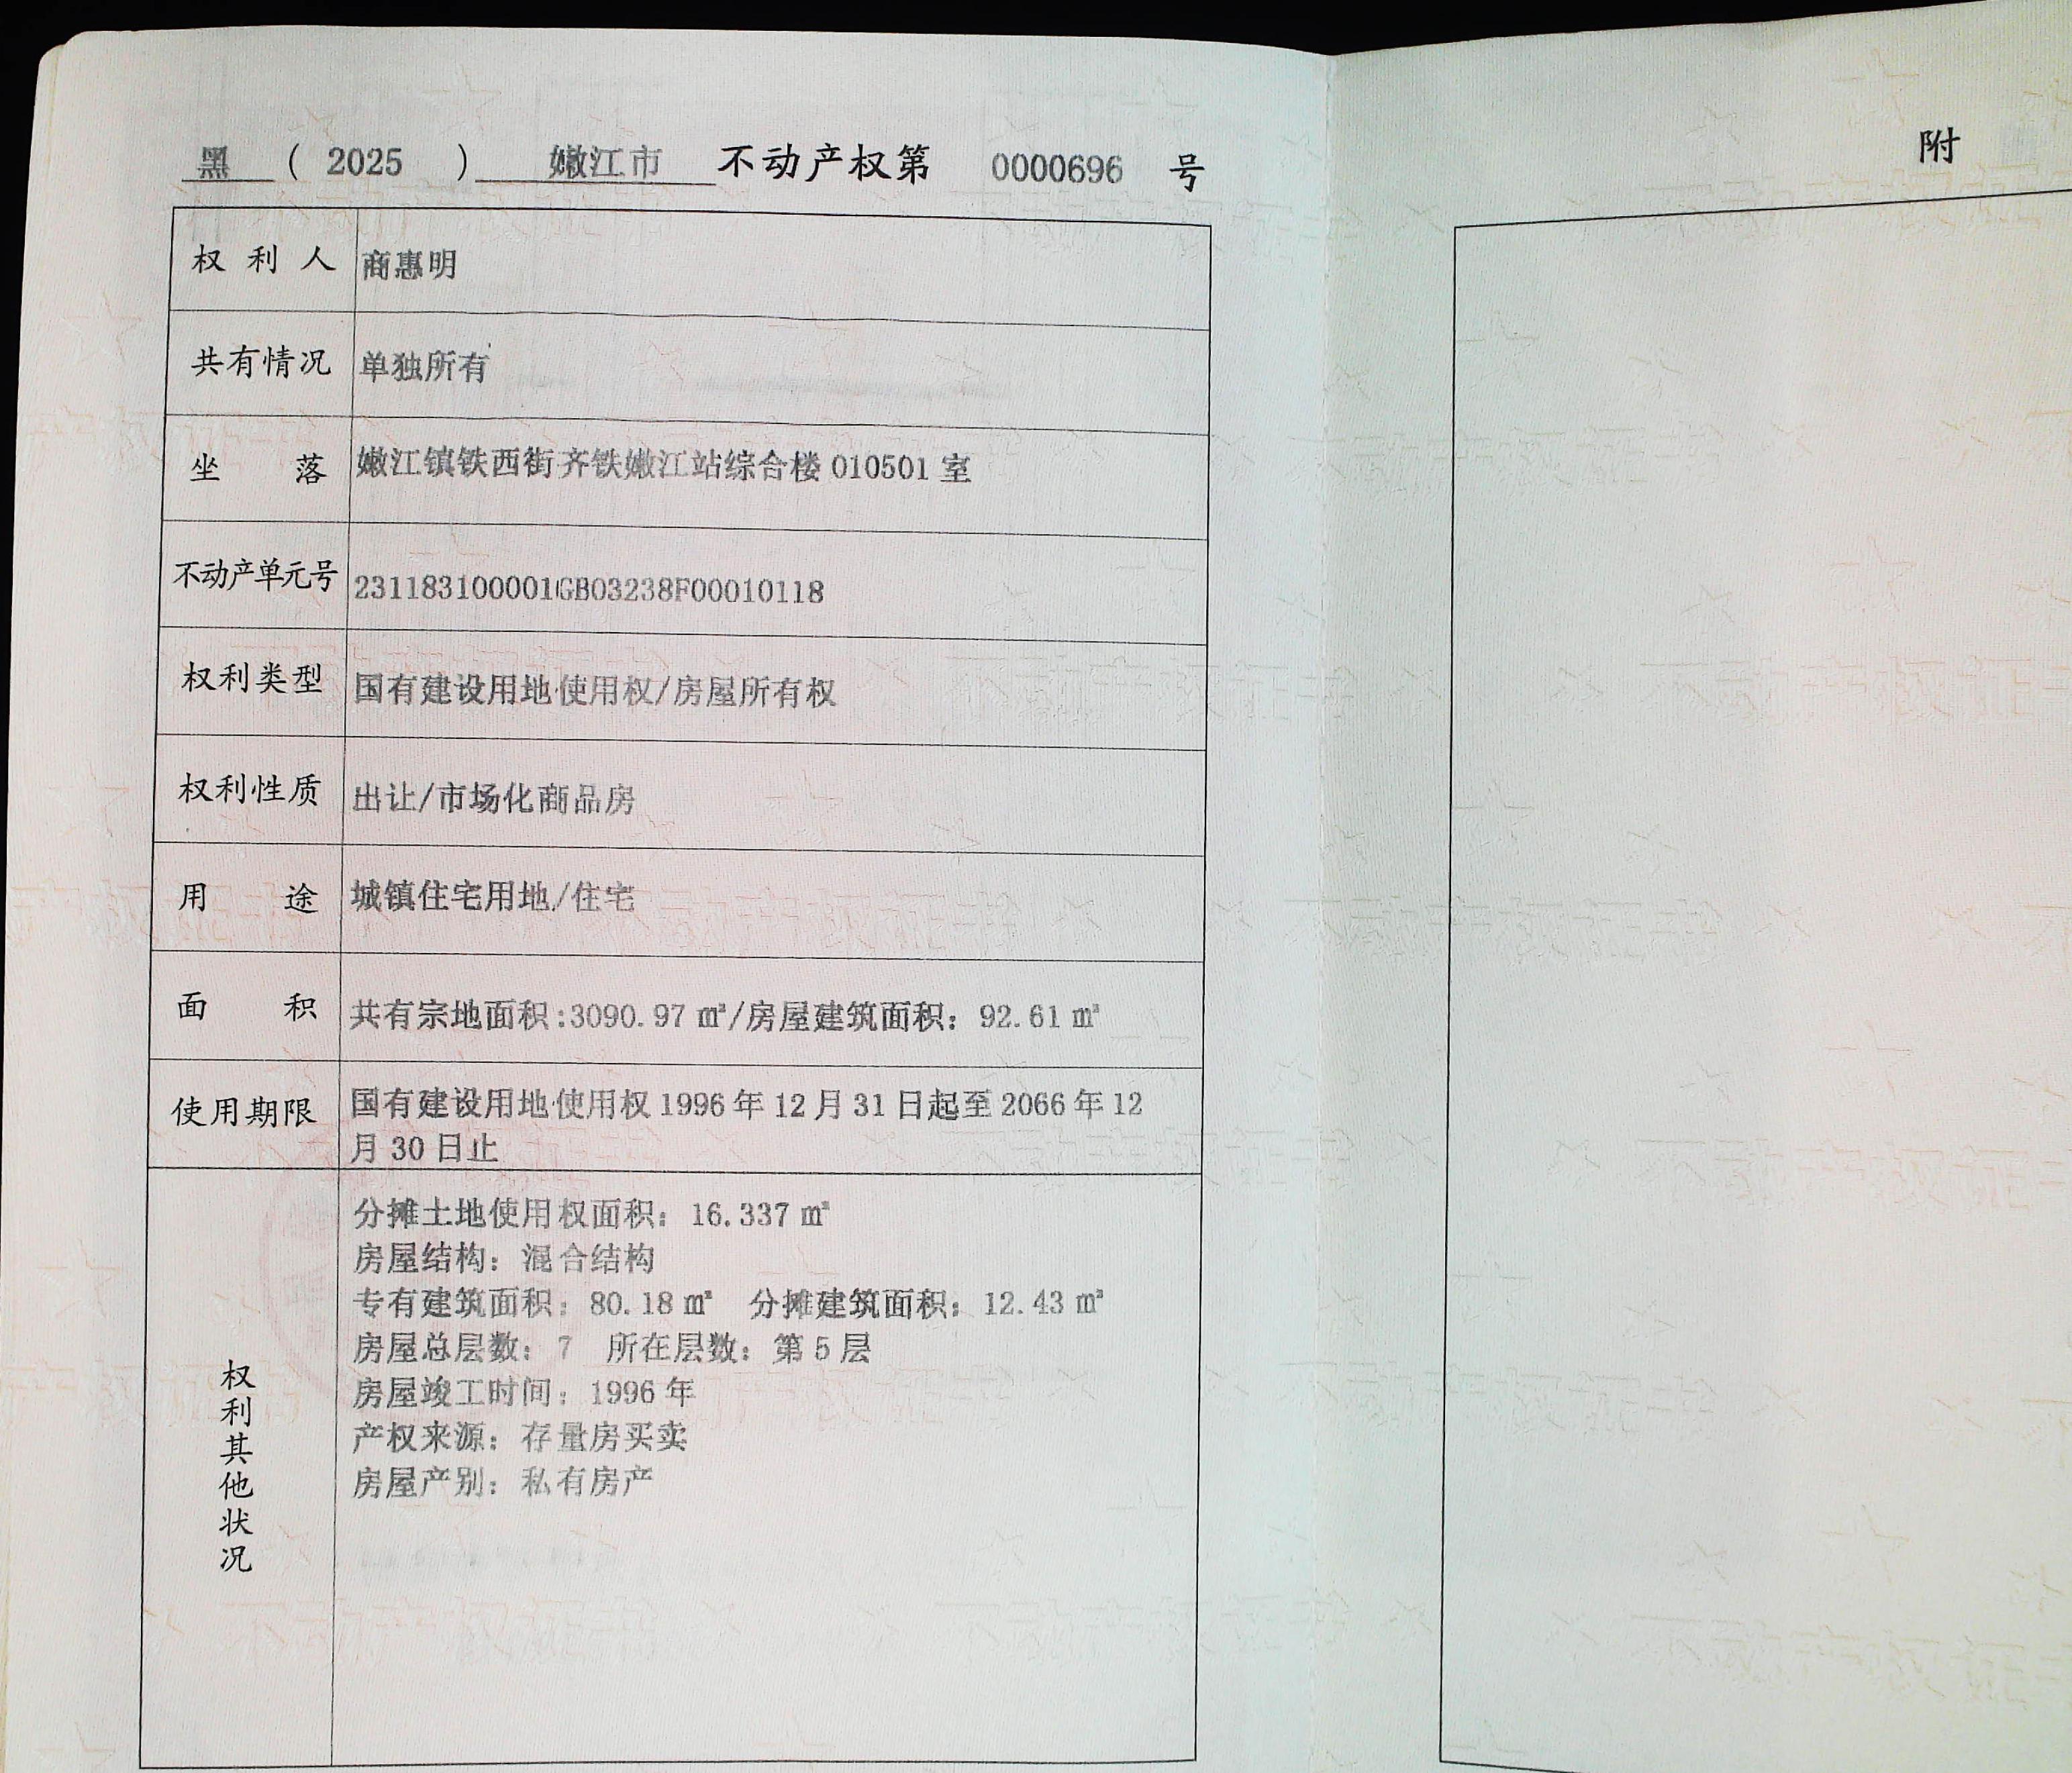 黑 ( 2025 ) 嫩江市 不动产权第 0000696 号
附
权利人 商惠明
共有情况 单独所有
坐落 嫩江镇铁西街齐铁嫩江站综合楼 010501 室
不动产单元号 231183100001GB03238F00010118
权利类型 国有建设用地使用权/房屋所有权
权利性质 出让/市场化商品房
用途 城镇住宅用地/住宅
面积 共有宗地面积:3090.97 ㎡/房屋建筑面积: 92.61 ㎡
使用期限 国有建设用地使用权 1996 年 12 月 31 日起至 2066 年 12
月 30 日止
权利其他状况
分摊土地使用权面积: 16.337 ㎡
房屋结构: 混合结构
专有建筑面积: 80.18 ㎡ 分摊建筑面积: 12.43 ㎡
房屋总层数: 7 所在层数: 第 5 层
房屋竣工时间: 1996 年
产权来源: 存量房买卖
房屋产别: 私有房产